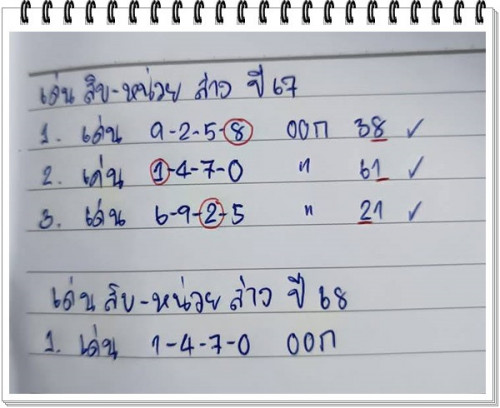 เด่น สิบ-หน่วย ล่าง ปี 67
1. เด่น 9-2-5-8 ออก 38 ✓
2. เด่น 1-4-7-0 " 61 ✓
3. เด่น 6-9-2-5 " 21 ✓
เด่น สิบ-หน่วย ล่าง ปี 68
1. เด่น 1-4-7-0 ออก